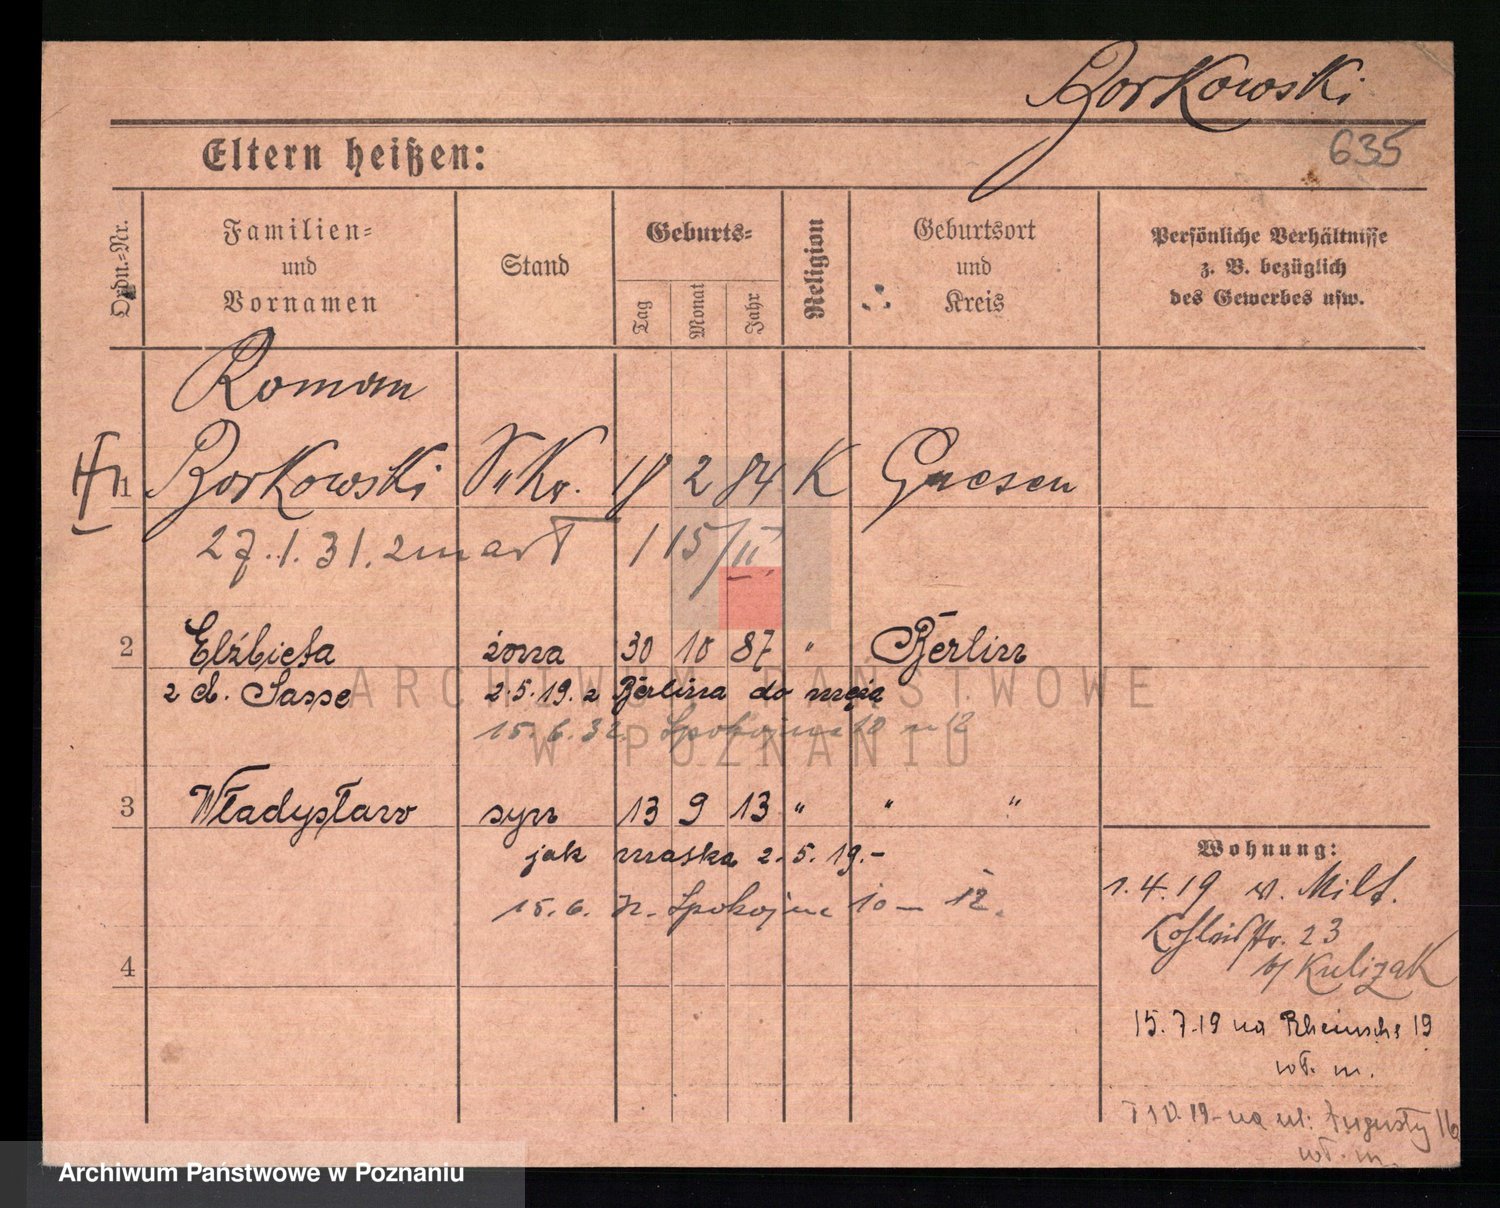 Borkowski
635
Eltern heißen:
Ordn.-Nr.
Familien- und Vornamen
Stand
Geburts-
Tag
Monat
Jahr
Religion
Geburtsort und Kreis
Persönliche Verhältnisse z. B. bezüglich des Gewerbes usw.
Roman
1 Borkowski 18 2 84 K Gnesen
27.1.31. zmarł 115/II.
2 Elżbieta żona 30 10 87 " Berlin
z d. Sasse 2.5.19. z Berlina do męża
15.6.32. Spokojna 10 m 12
3 Władysław syn 13 9 13 " " "
jak matka 2.5.19.-
15.6. Spokojna 10 — 12.
4
Wohnung:
1.4.19 v. Milt.
23
b/ Kulizak
15.7.19 na Rheinsche 19
wł. m.
19 na ul: Augusty 16
wł. m.
ARCHIWUM PAŃSTWOWE
W POZNANIU
Archiwum Państwowe w Poznaniu